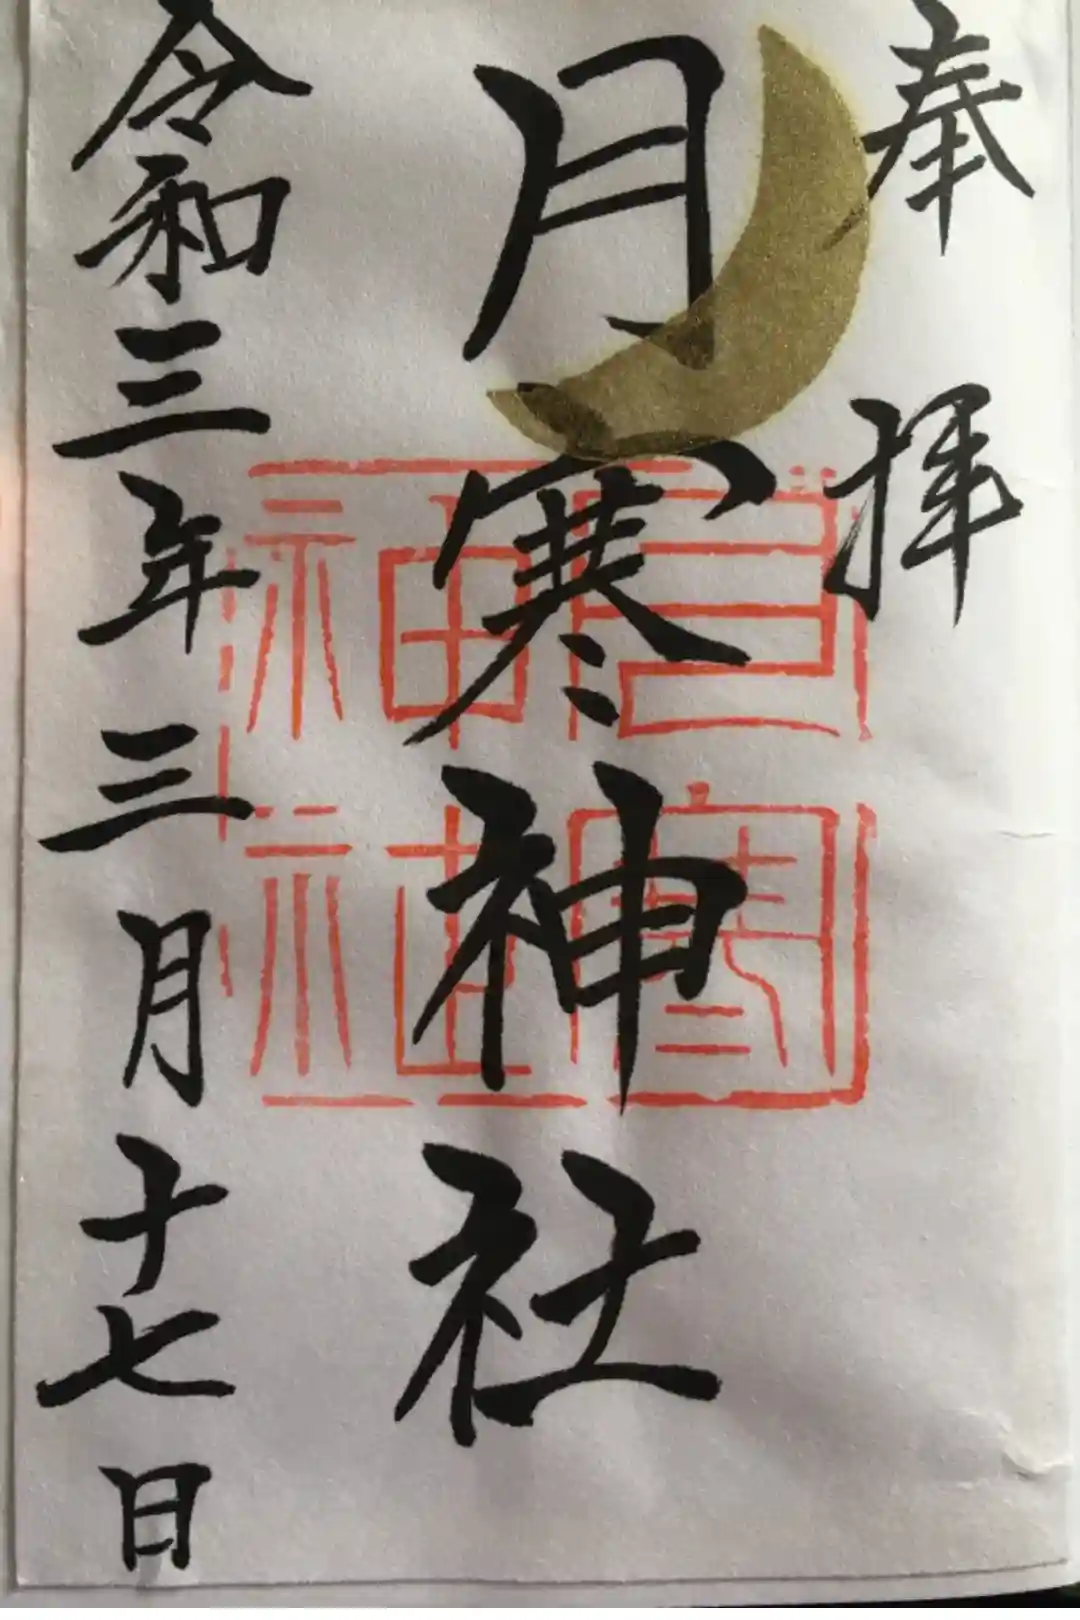 奉拝
月寒神社
月寒神社
令和三年三月十七日